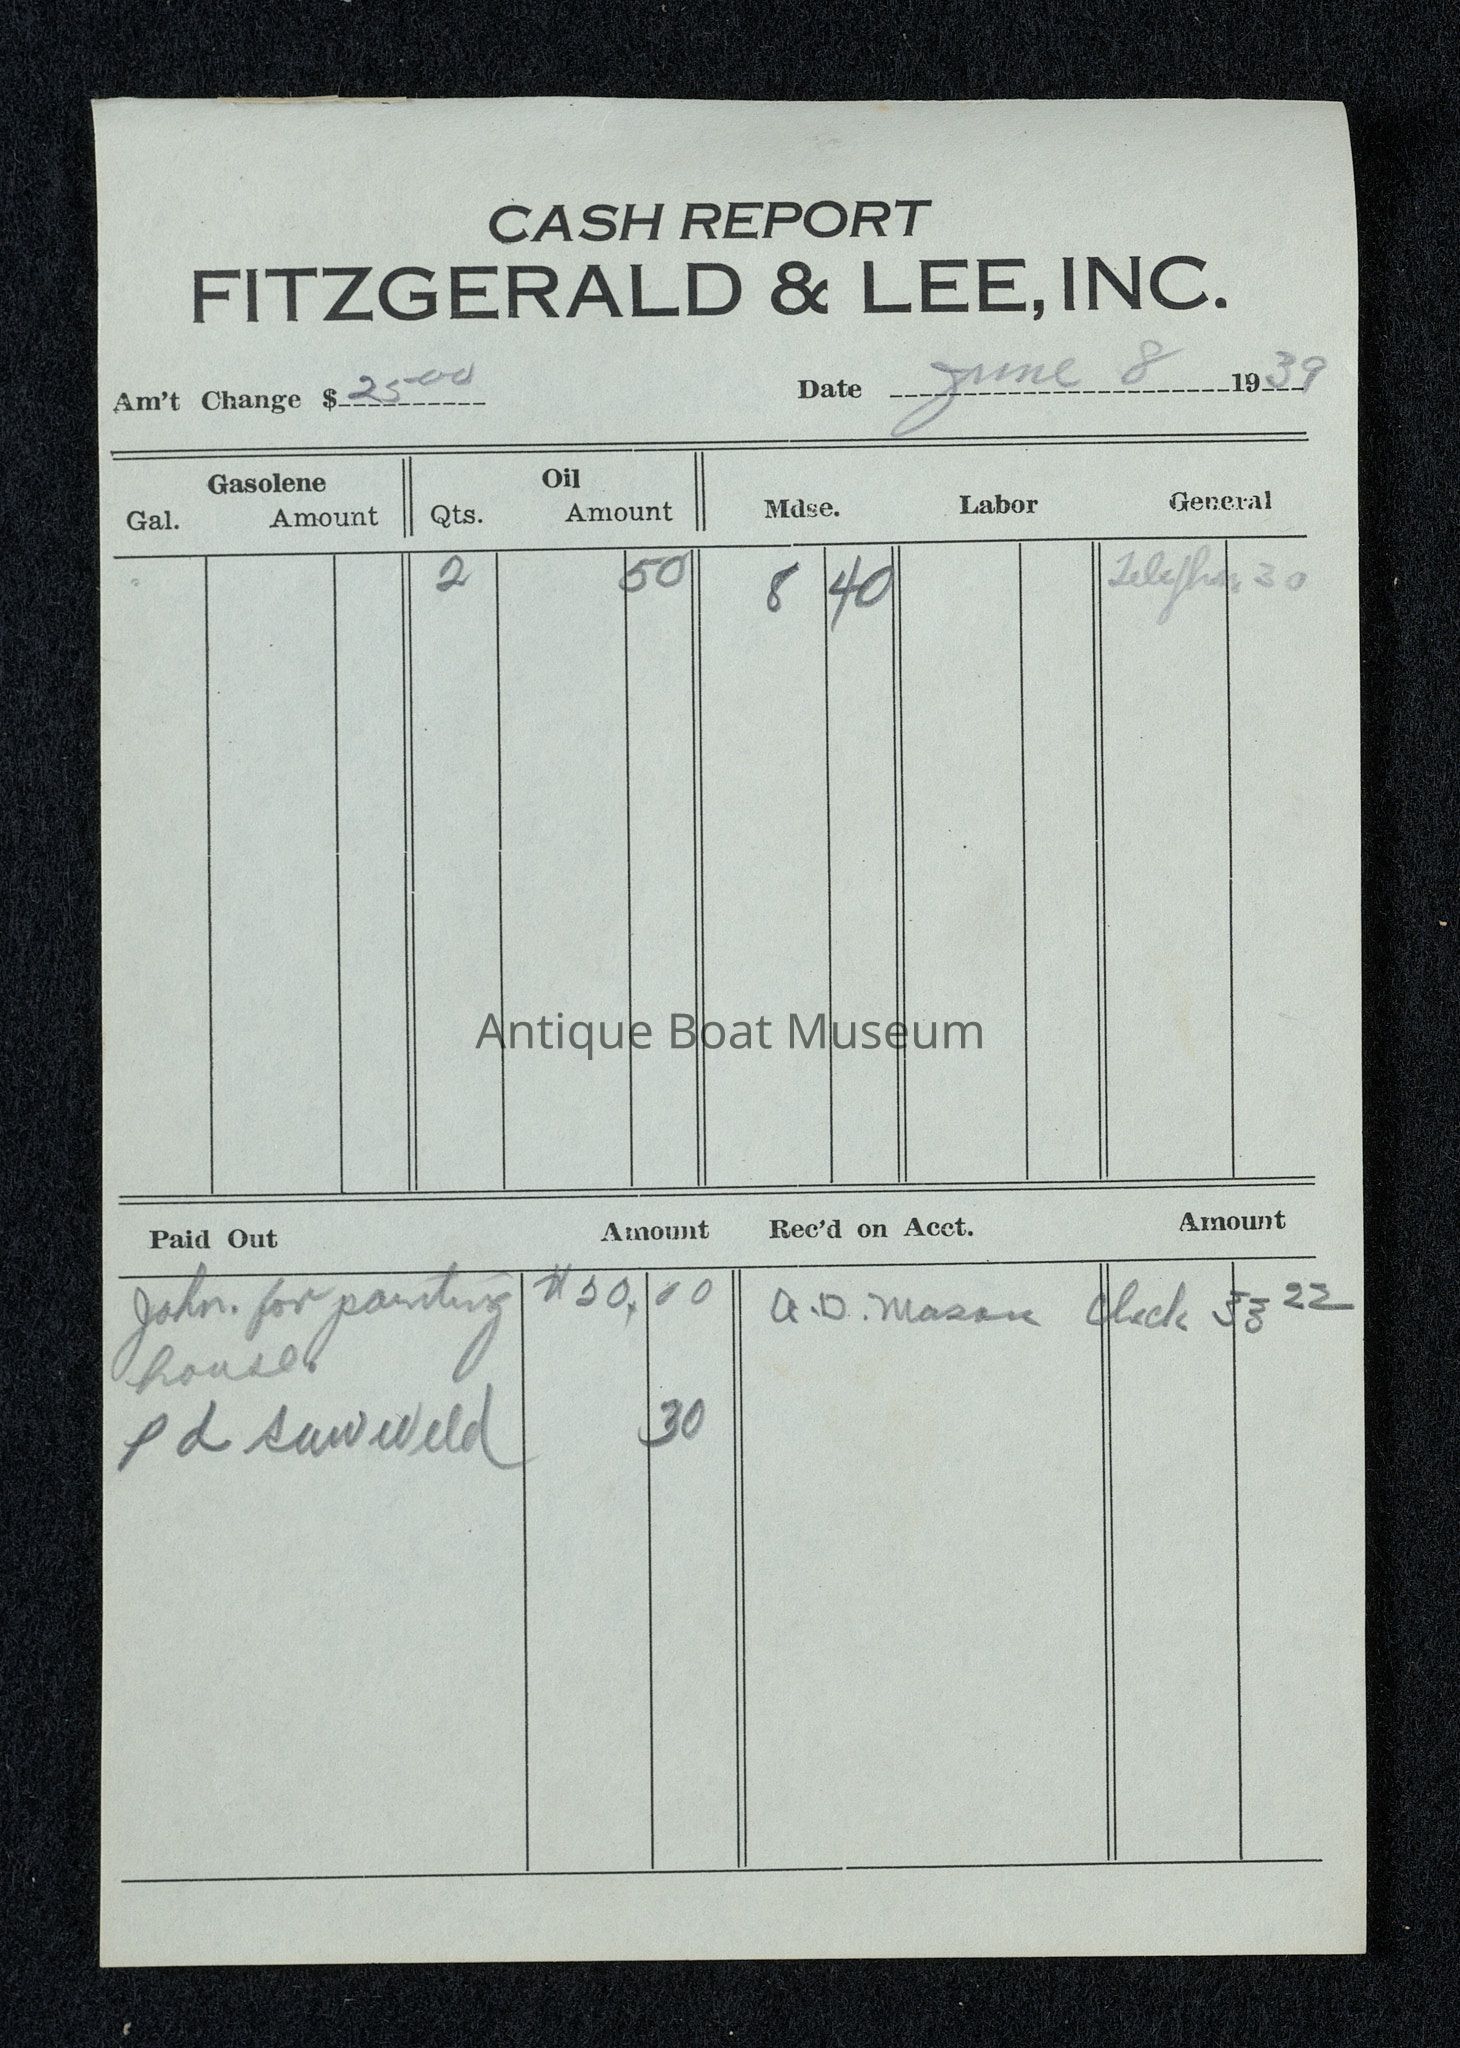 CASH REPORT
FITZGERALD & LEE, INC.
Am't Change $ 25 00 Date June 8 1939
Gasolene Oil
Gal. Amount Qts. Amount Mdse. Labor General
2 50 8 40 30
Antique Boat Museum
Paid Out Amount Rec'd on Acct. Amount
John. for painting $20.00 A.D. Mason Check 22
house.
Pd 30